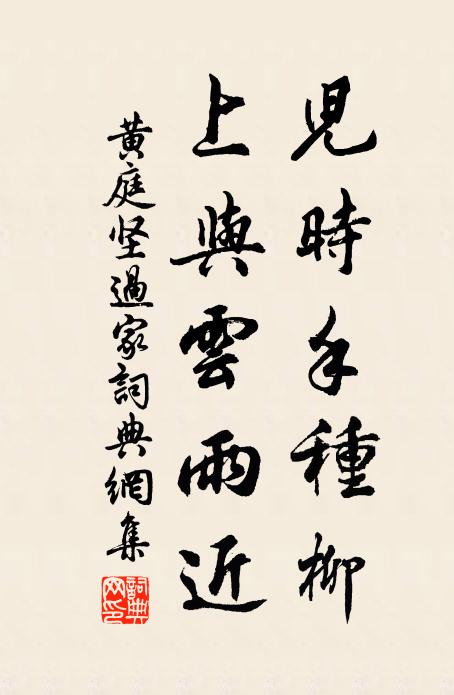 兒時手種柳
上與雲雨近
黄庭坚過家詞典網集
詞典網印